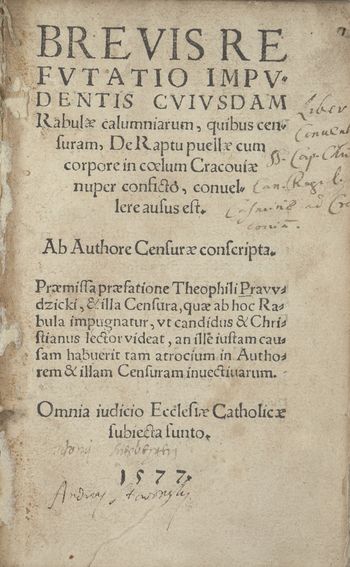 BREVIS RE
FVTATIO IMPV-
DENTIS CVIVSDAM
Rabulæ calumniarum, quibus cen-
suram, De Raptu puellæ cum
corpore in cœlum Cracouiæ
nuper conficto, conuel-
lere ausus est.
Ab Authore Censuræ conscripta.
Præmissa præfatione Theophili Pravv-
dzicki, & illa Censura, quæ ab hoc Ra-
bula impugnatur, vt candidus & Chri-
stianus lector videat, an ille iustam cau-
sam habuerit tam atrocium in Autho-
rem & illam Censuram inuectiuarum.
Omnia iudicio Ecclesiæ Catholicæ
subiecta sunto.
1577
Liber
Conuent